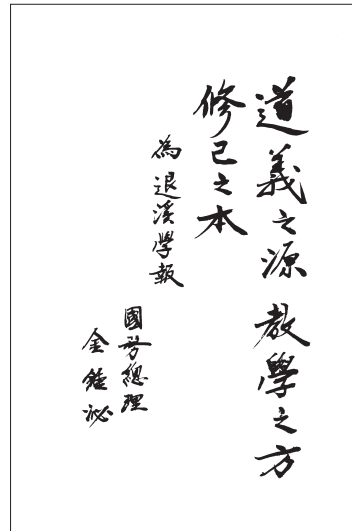 道義之源 教學之方
修己之本
為退溪學報
國務總理
金鍾泌